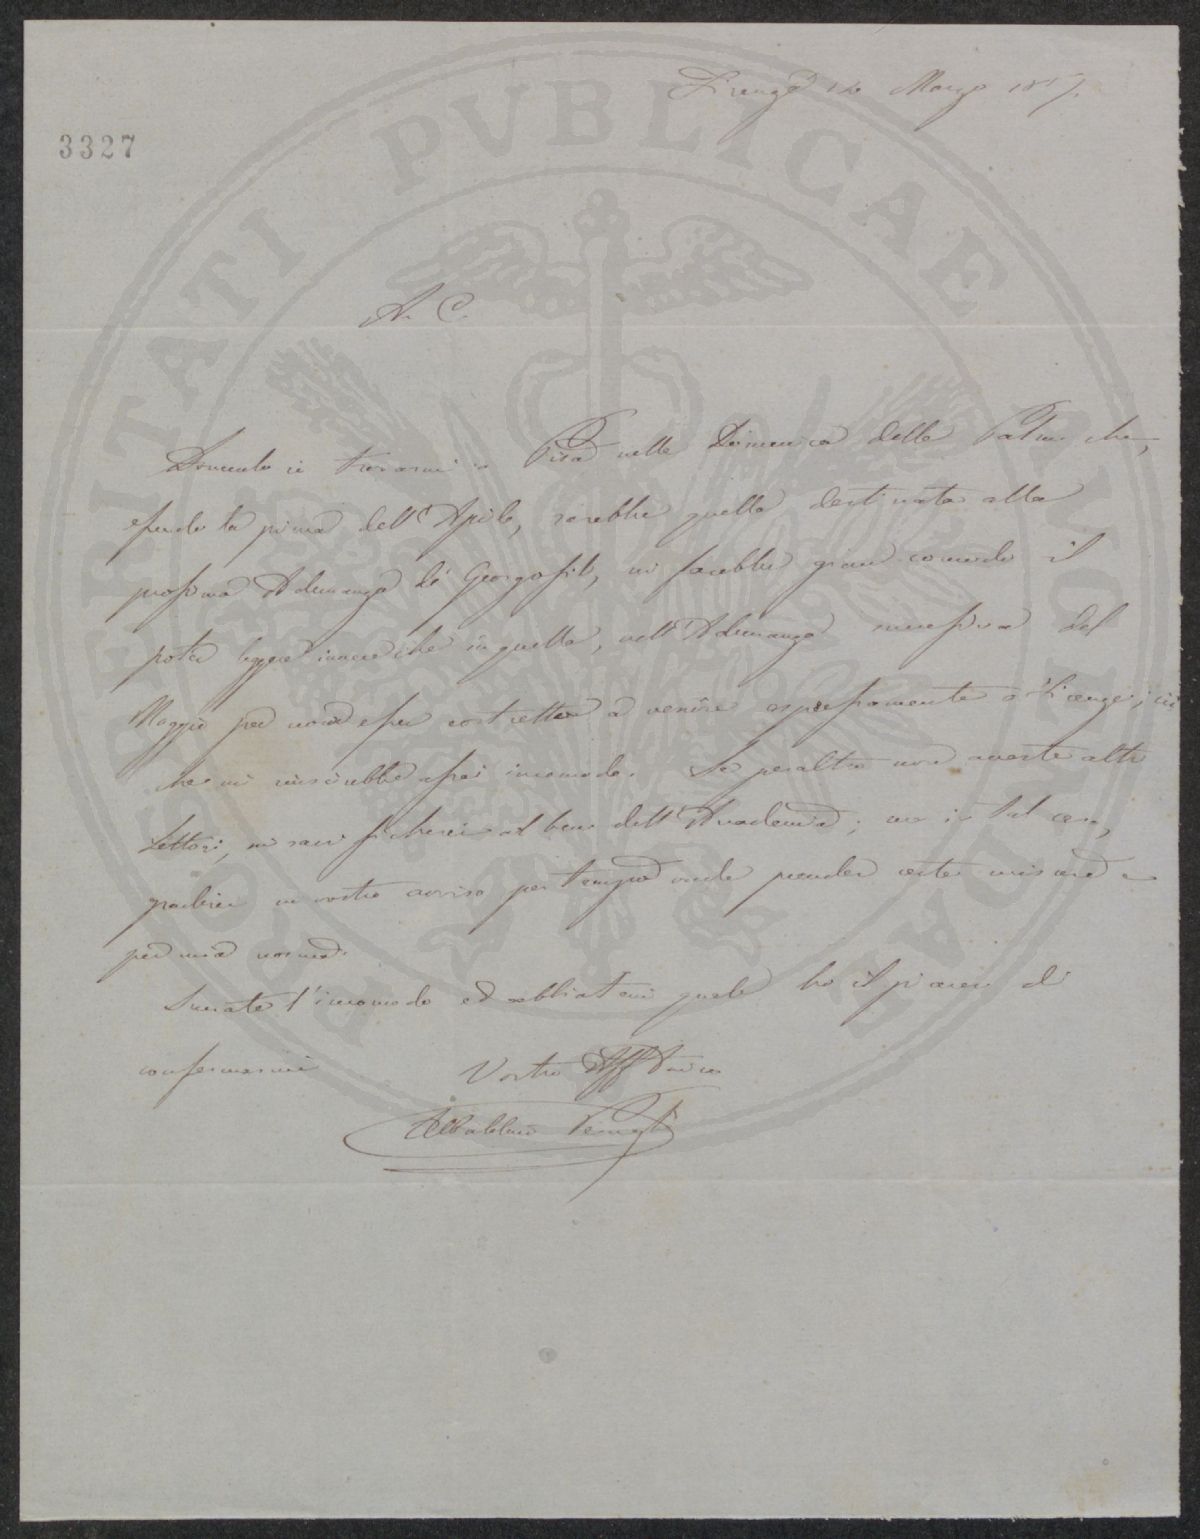 Firenze 14 Marzo 1857.
3327
A. C.
Dovendo io trovarmi a Pisa nella Domenica delle Palme che,
essendo la prima dell'Aprile, sarebbe quella destinata alla
prossima Adunanza de' Georgofili, mi farebbe gran comodo il
poter leggere invece che in quella, nell'Adunanza successiva del
Maggio per non esser costretto a venire espressamente a Firenze; ciò
che mi riuscirebbe assai incomodo. Se peraltro non aveste altri
Lettori, mi sacrificherei al bene dell'Accademia; ma in tal caso,
gradirei un vostro avviso per tempo onde prender certe misure e
per mia norma.
Scusate l'incomodo ed abbiatemi quale ho il piacere di
confermarmi
Vostro Aff Amico
PROSPERITATI PVBLICAE AVGENDAE